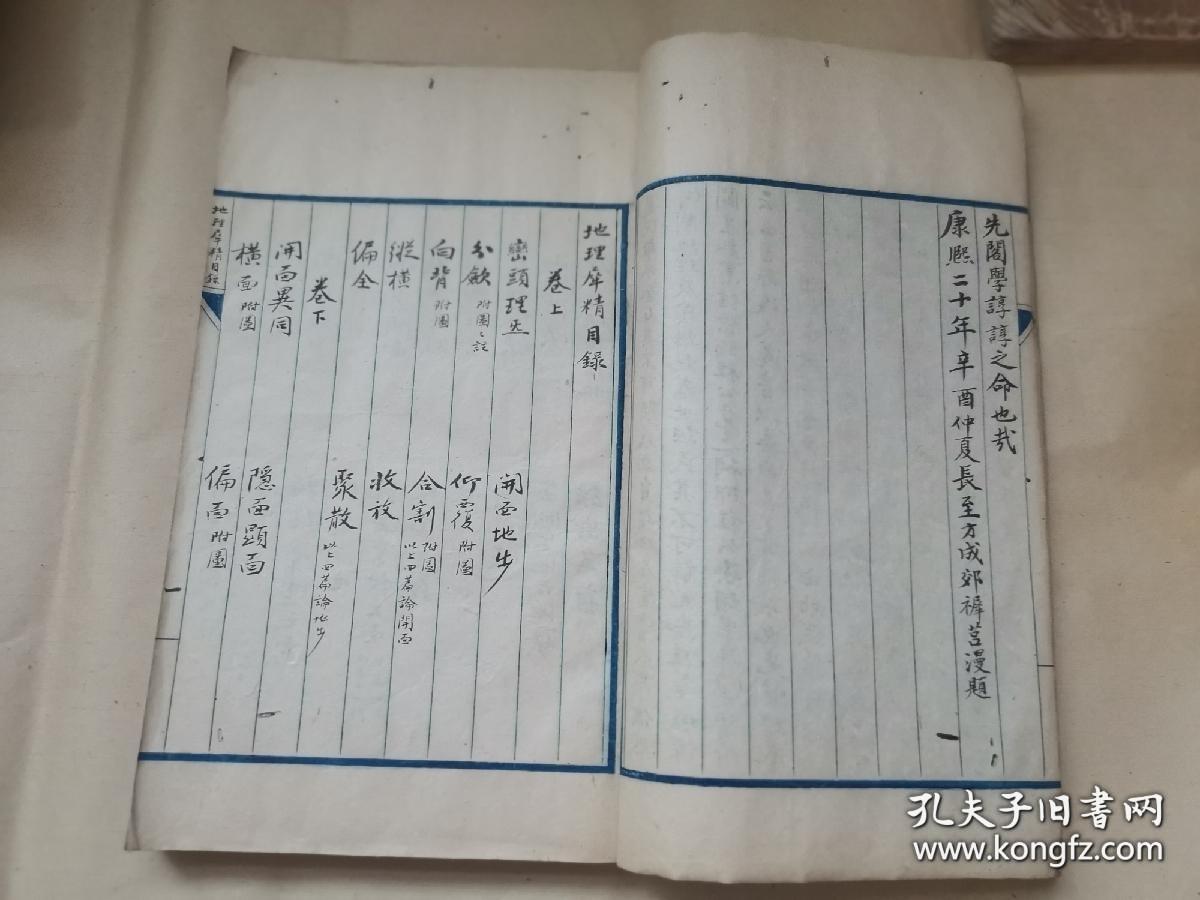 先閣學諄諄之命也哉
康熙二十年辛酉仲夏長至方成郊禖莒漫題
地理犀精目錄
卷上
巒頭理炁 開面地步
分斂附圖〻註 仰覆附圖
向背附圖 合割附圖以上四篇論開面
縱橫 收放
偏全 聚散以上四篇論地步
卷下
開面異同 隱面顯面
橫面附圖 偏面附圖
地理犀精目錄
孔夫子旧书网
www.kongfz.com